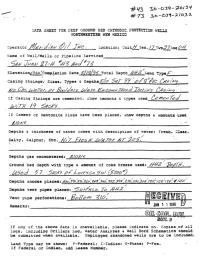 #43 30-039-20134
#73 30-039-21032
DATA SHEET FOR DEEP GROUND BED CATHODIC PROTECTION WELLS
NORTHWESTERN NEW MEXICO
Operator Meridian Oil Inc. Location: Unit
Name of Well/Wells or Pipeline Serviced
San Juan 27-4 #43 and #73
Elevation Completion Date Total Depth Land Type F
Casing Strings, Sizes, Types & Depths Set 99' of 8" PVC Casing
No Gas, Water, or Boulders Were Encountered During Casing.
If Casing Strings are cemented, show amounts & types used Cemented
With 19 Sacks
If Cement or Bentonite Plugs have been placed, show depths & amounts used
None
Depths & thickness of water zones with description of water: Fresh, Clear,
Salty, Sulphur, Etc. Hit Fresh Water At 205'.
Depths gas encountered: None
Ground bed depth with type & amount of coke breeze used: 442' Depth.
Used 57 Sacks of
Depths anodes placed:
Depths vent pipes placed: Surface To 442'
Vent pipe perforations: Bottom 310'.
Remarks:
RECEIVED
JAN 31 1994
OIL CON. DIV.
DIST. 3
If any of the above data is unavailable, please indicate so. Copies of all
logs, including Drillers Log, Water Analyses & Well Bore Schematics should
be submitted when available. Unplugged abandoned wells are to be included.
Land Type may be shown: F-Federal; I-Indian; S-State; P-Fee.
If Federal or Indian, add Lease Number.